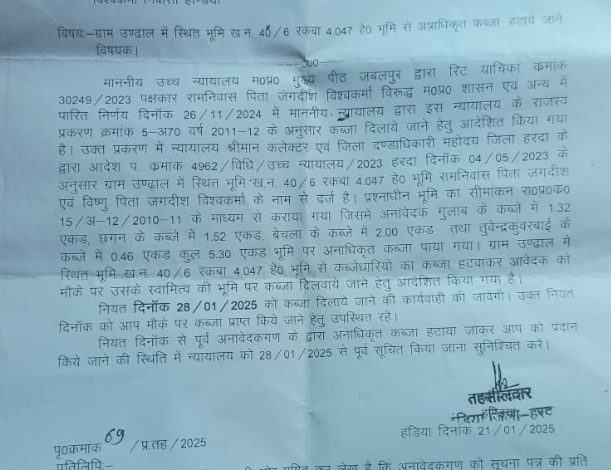 विश्वकर्मा निवासी हण्डिया
विषय:–ग्राम उण्ढाल में स्थित भूमि ख.न. 40/6 रकबा 4.047 हे0 भूमि से अप्राधिकृत कब्जा हटाये जाने
विषयक।
––00––
माननीय उच्च न्यायालय म0प्र0 मुख्य पीठ जबलपुर द्वारा रिट याचिका कमांक
30249/2023 पक्षकार रामनिवास पिता जगदीश विश्वकर्मा विरूद्ध म0प्र0 शासन एवं अन्य में
पारित निर्णय दिनॉक 26/11/2024 में माननीय न्यायालय द्वारा इस न्यायालय के राजस्व
प्रकरण क्रमांक 5–अ70 वर्ष 2011–12 के अनुसार कब्जा दिलाये जाने हेतु आदेशित किया गया
है। उक्त प्रकरण में न्यायालय श्रीमान कलेक्टर एवं जिला दण्डाधिकारी महोदय जिला हरदा के
द्वारा आदेश प. कमांक 4962/विधि/उच्च न्यायालय/2023 हरदा दिनॉक 04/05/2023 के
अनुसार ग्राम उण्ढाल में स्थित भूमि ख.न. 40/6 रकबा 4.047 हे0 भूमि रामनिवास पिता जगदीश
एवं विष्णु पिता जगदीश विश्वकर्मा के नाम से दर्ज है। प्रश्नाधीन भूमि का सीमांकन रा0प्र0क0
15/अ–12/2010–11 के माध्यम से कराया गया जिसमें अनावेदक गुलाब के कब्जे में 1.32
एकड़, छगन के कब्जे में 1.52 एकड़, बेचला के कब्जे में 2.00 एकड तथा तुवेन्द्रकुंवरबाई के
कब्जे में 0.46 एकड कुल 5.30 एकड़ भूमि पर अनाधिकृत कब्जा पाया गया। ग्राम उण्ढाल में
स्थित भूमि ख.न. 40/6 रकबा 4.047 हे0 भूमि से कब्जेधारियो का कब्जा हटवाकर आवेदक को
मौके पर उसके स्वामित्व की भूमि पर कब्जा दिलवाये जाने हेतु आदेशित किया गया है।
नियत दिनॉक 28/01/2025 को कब्जा दिलाये जाने की कार्यवाही की जावेगी। उक्त नियत
दिनॉक को आप मौके पर कब्जा प्राप्त किये जाने हेतु उपस्थित रहे।
नियत दिनॉक से पूर्व अनावेदकगण के द्वारा अनाधिकृत कब्जा हटाया जाकर आप को प्रदान
किये जाने की स्थिति में न्यायालय को 28/01/2025 से पूर्व सूचित किया जाना सुनिश्चित करे।
तहसीलदार
हंडिया दिनांक 21/01/2025
पृ0क्रमांक 69 /प्र.तह/2025
प्रतिलिपि:–
की ओर प्रेषित कर लेख है कि अनावेदकगण को सूचना पत्र की प्रति